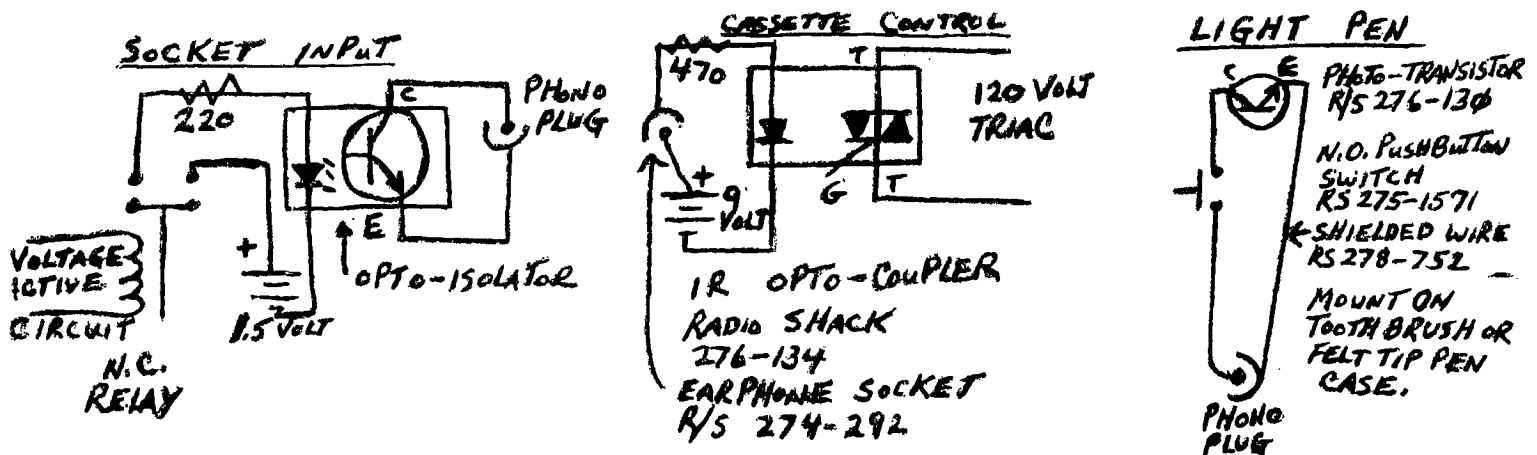 SOCKET INPUT
220
C
PHONO
PLUG
E
+
OPTO-ISOLATOR
VOLTAGE
ICTIVE
CIRCUIT
1.5 VOLT
N.C.
RELAY
CASSETTE CONTROL
470
T
120 VOLT
TRIAC
+
9
VOLT
G
T
IR OPTO-COUPLER
RADIO SHACK
276-134
EARPHONE SOCKET
R/S 274-292
LIGHT PEN
C
E
PHOTO-TRANSISTOR
R/S 276-130
N.O. PUSHBUTTON
SWITCH
RS 275-1571
SHIELDED WIRE
RS 278-752
MOUNT ON
TOOTHBRUSH OR
FELT TIP PEN
CASE.
PHONO
PLUG